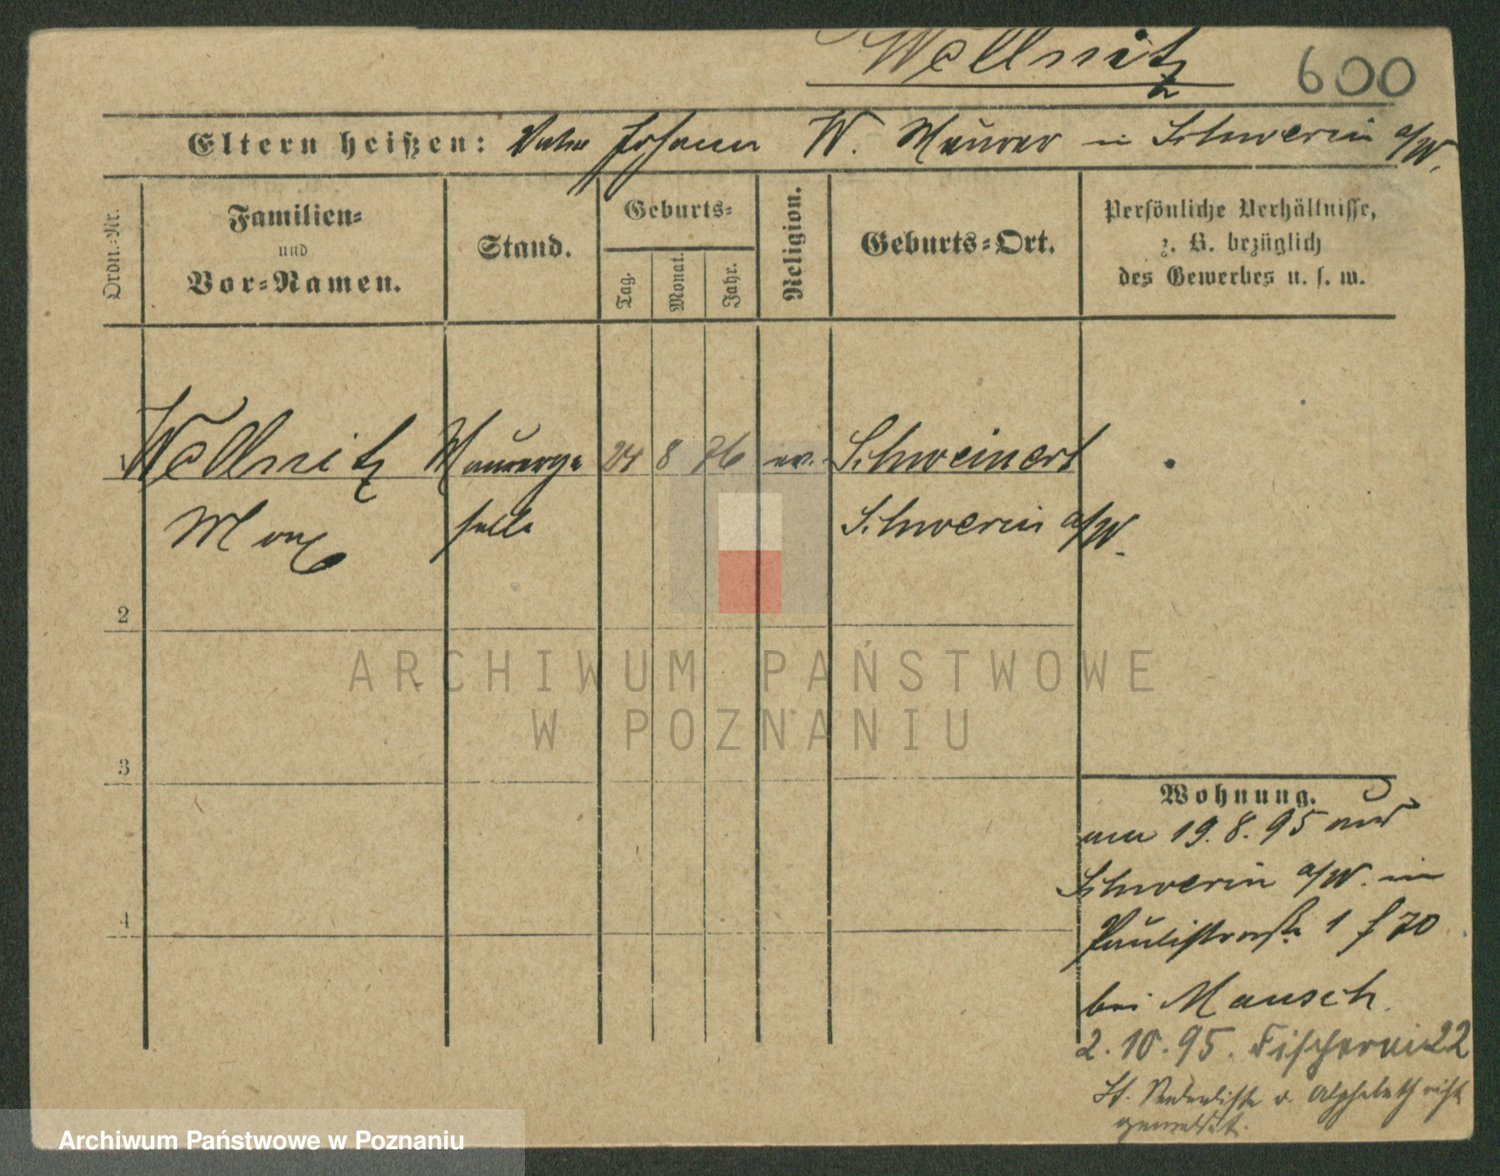 Wellnitz
600
Eltern heißen: Vater Johann W. Maurer in Schwerin a/W.
Ordn.-Nr.
Familien-
und
Vor-Namen.
Stand.
Geburts-
Tag.
Monat.
Jahr.
Religion.
Geburts-Ort.
Persönliche Verhältnisse,
z. B. bezüglich
des Gewerbes u. s. w.
Wellnitz Maurerge 24 8 76 ev. Schweinert
Max selle Schwerin a/W.
2
3
4
ARCHIWUM PAŃSTWOWE
W POZNANIU
Wohnung.
am 19.8.95 aus
Schwerin a/W. in
Paulistraße 1
bei Mausch
2.10.95. Fischerei 22
gemeldet.
Archiwum Państwowe w Poznaniu